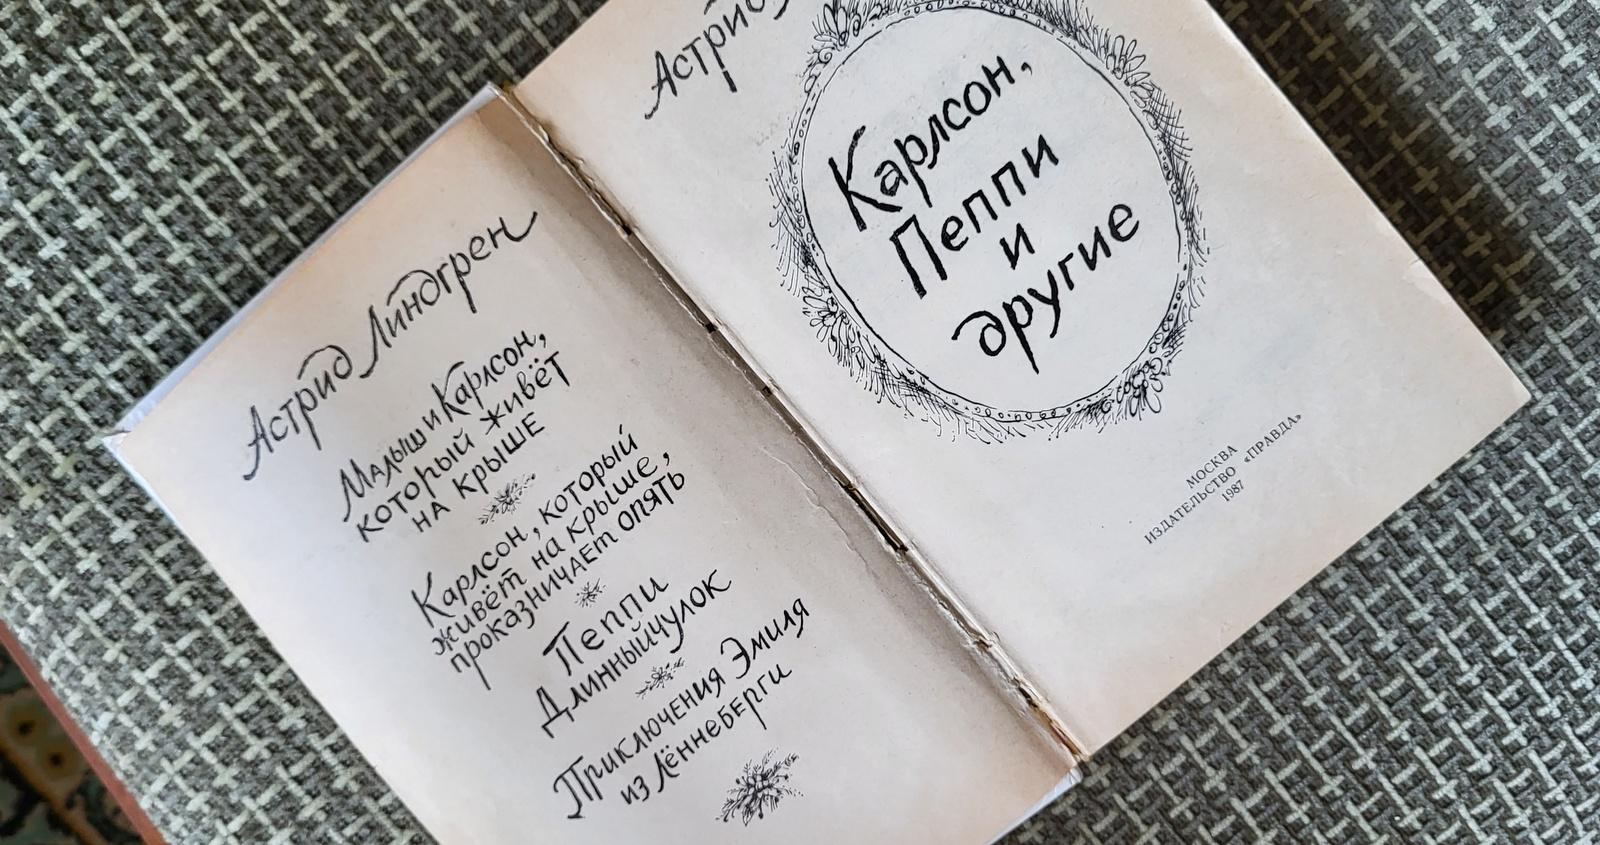 Астрид Линдгрен
Малыш и Карлсон,
который живёт
на крыше
Карлсон, который
живёт на крыше,
проказничает опять
Пеппи
Длинныйчулок
Приключения Эмиля
из Лённеберги
Астрид
Карлсон,
Пеппи
и
другие
МОСКВА
ИЗДАТЕЛЬСТВО «ПРАВДА»
1987